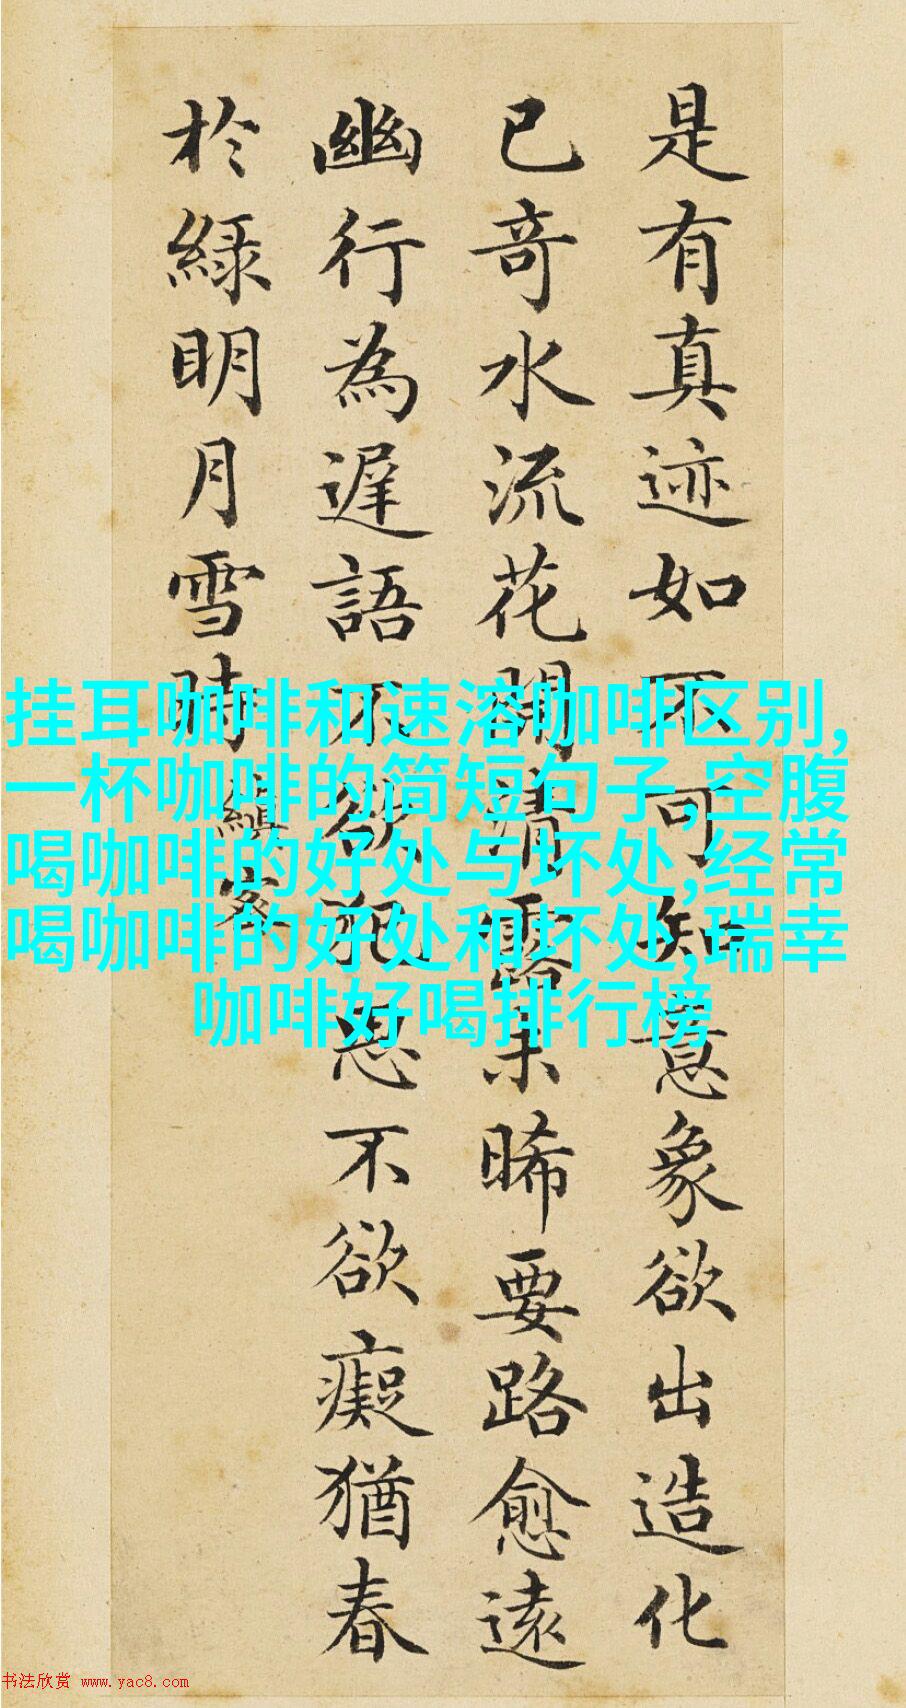 是有真迹如不可知意象欲出造化
已竒水流花開清露未晞要路愈遠
幽行為遲語不欲犯思不欲癡猶春
於緑明月雪時 縝密
挂耳咖啡和速溶咖啡区别,
一杯咖啡的简短句子,空腹
喝咖啡的好处与坏处,经常
喝咖啡的好处和坏处,瑞幸
咖啡好喝排行榜
书法欣赏 www.yac8.com